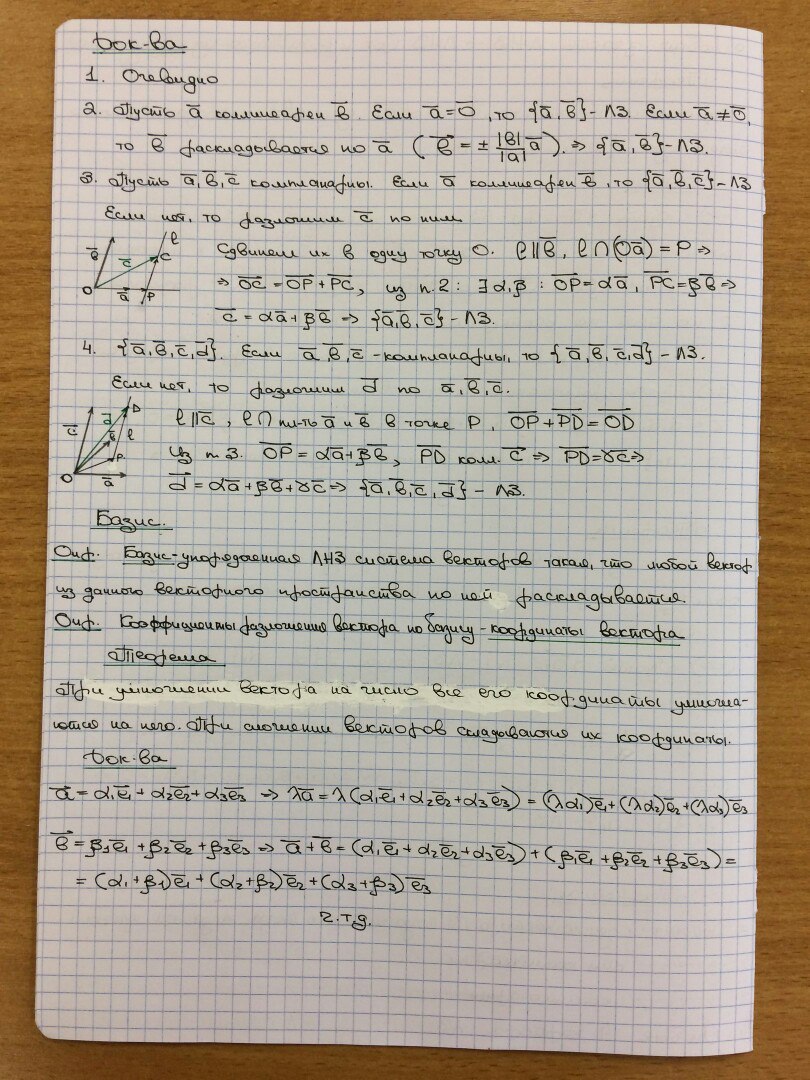 Док-ва
1. Очевидно
2. Пусть a̅ коллинеарен b̅. Если a̅=0̅, то {a̅,b̅}-ЛЗ. Если a̅≠0̅,
то b̅ раскладывается по a̅ (b̅=±|b̅|/|a̅| a̅). ⇒ {a̅,b̅}-ЛЗ.
3. Пусть a̅,b̅,c̅ компланарны. Если a̅ коллинеарен b̅, то {a̅,b̅,c̅}-ЛЗ
Если нет, то разложим c̅ по ним
b̅ c̅ ℓ C O a̅ P
Сдвинем их в одну точку O. ℓ∥b̅, ℓ∩(Oa̅)=P ⇒
⇒ O̅C̅=O̅P̅+P̅C̅, из п.2: ∃α,β: O̅P̅=αa̅, P̅C̅=βb̅ ⇒
c̅=αa̅+βb̅ ⇒ {a̅,b̅,c̅}-ЛЗ.
4. {a̅,b̅,c̅,d̅}. Если a̅,b̅,c̅-компланарны, то {a̅,b̅,c̅,d̅}-ЛЗ.
Если нет, то разложим d̅ по a̅,b̅,c̅.
c̅ d̅ D b̅ ℓ P O a̅
ℓ∥c̅, ℓ∩пл-ть a̅ и b̅ в точке P. O̅P̅+P̅D̅=O̅D̅
Из п.3. O̅P̅=αa̅+βb̅, P̅D̅ колл. c̅ ⇒ P̅D̅=γc̅ ⇒
d̅=αa̅+βb̅+γc̅ ⇒ {a̅,b̅,c̅,d̅}-ЛЗ.
Базис.
Опр. Базис-упорядоченная ЛНЗ система векторов такая, что любой вектор
из данного векторного пространства по ней раскладывается.
Опр. Коэффициенты разложения вектора по базису-координаты вектора
Теорема
При умножении вектора на число все его координаты умножа-
ются на него. При сложении векторов складываются их координаты.
Док-ва
a̅=α₁e̅₁+α₂e̅₂+α₃e̅₃ ⇒ λa̅=λ(α₁e̅₁+α₂e̅₂+α₃e̅₃)=(λα₁)e̅₁+(λα₂)e̅₂+(λα₃)e̅₃
b̅=β₁e̅₁+β₂e̅₂+β₃e̅₃ ⇒ a̅+b̅=(α₁e̅₁+α₂e̅₂+α₃e̅₃)+(β₁e̅₁+β₂e̅₂+β₃e̅₃)=
=(α₁+β₁)e̅₁+(α₂+β₂)e̅₂+(α₃+β₃)e̅₃
ч.т.д.